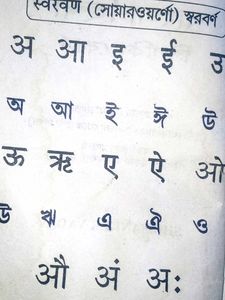 स्वरवर्ण (সোয়ারওয়র্ণো) স্বরবর্ণ
अ आ इ ई उ
অ আ ই ঈ উ
ऊ ऋ ए ऐ ओ
ঊ ঋ এ ঐ ও
औ अं अः